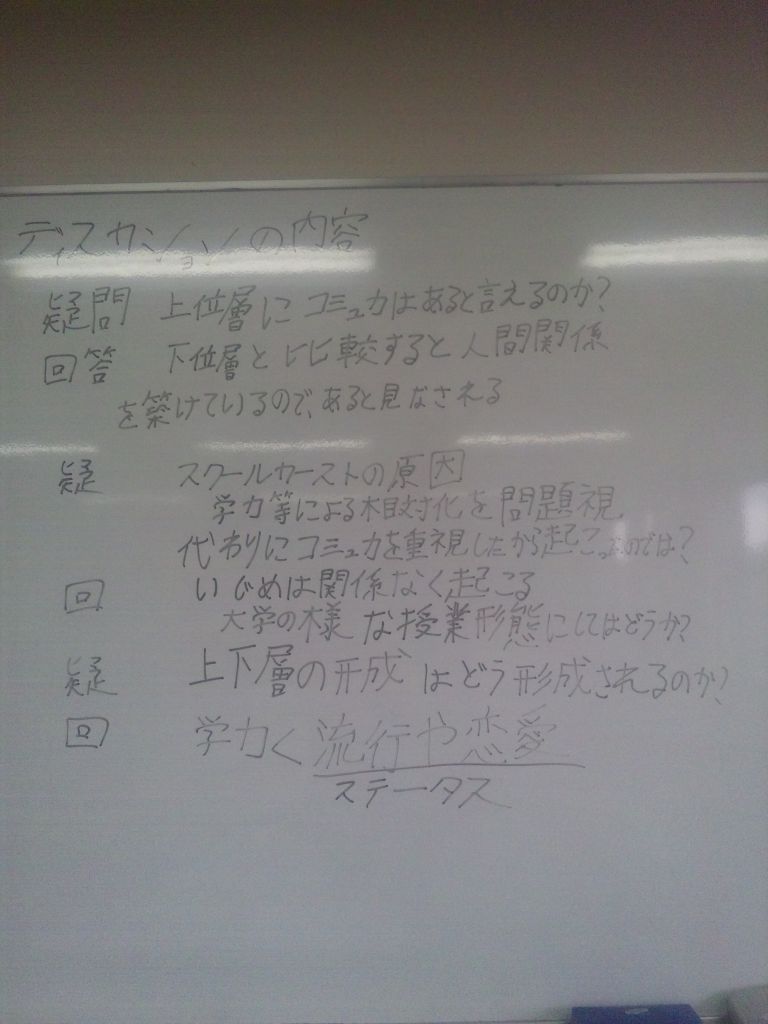 ディスカションの内容
疑問 上位層にコミュ力はあると言えるのか?
回答 下位層と比較すると人間関係
を築けているので、あると見なされる
疑 スクールカーストの原因
学力等による相対化を問題視
代わりにコミュ力を重視したから起こったのでは?
回 いじめは関係なく起こる
大学の様な授業形態にしてはどうか?
疑 上下層の形成はどう形成されるのか?
回 学力く流行や恋愛
ステータス